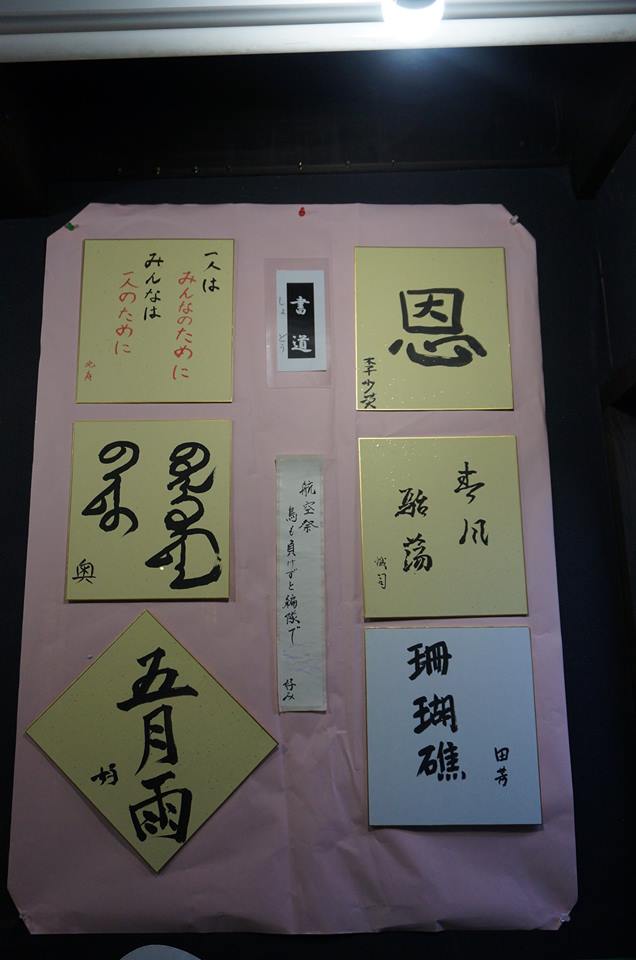 書道
しょどう
恩
李少英
春风
駘蕩
誠司
珊瑚礁
田芳
航空祭
鳥も負けずと編隊で
好み
一人は
みんなのために
みんなは
一人のために
奥
五月雨
好